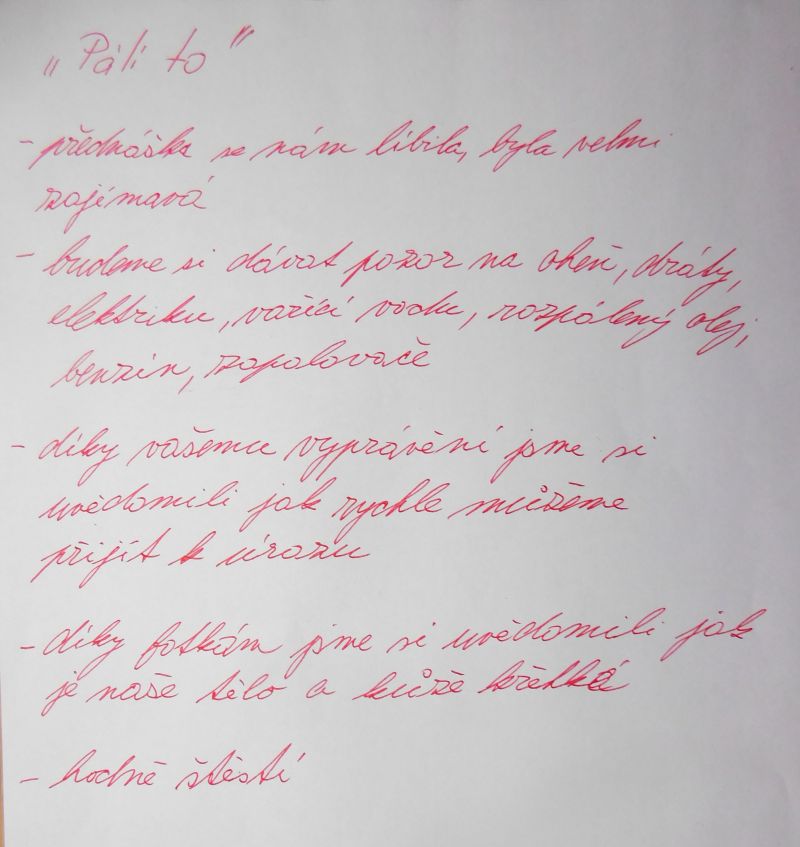 „Pálí to"
- přednáška se nám líbila, byla velmi
zajímavá
- budeme si dávat pozor na oheň, dráty,
elektriku, vařící vodu, rozpálený olej,
benzín, zapalovače
- díky vašemu vyprávění jsme si
uvědomili jak rychle můžeme
přijít k úrazu
- díky fotkám jsme si uvědomili jak
je naše tělo a kůže křehká
- hodně štěstí